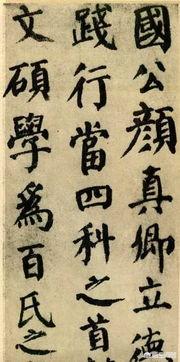 國公顏真卿立德
踐行當四科之首
文碩學爲百氏之